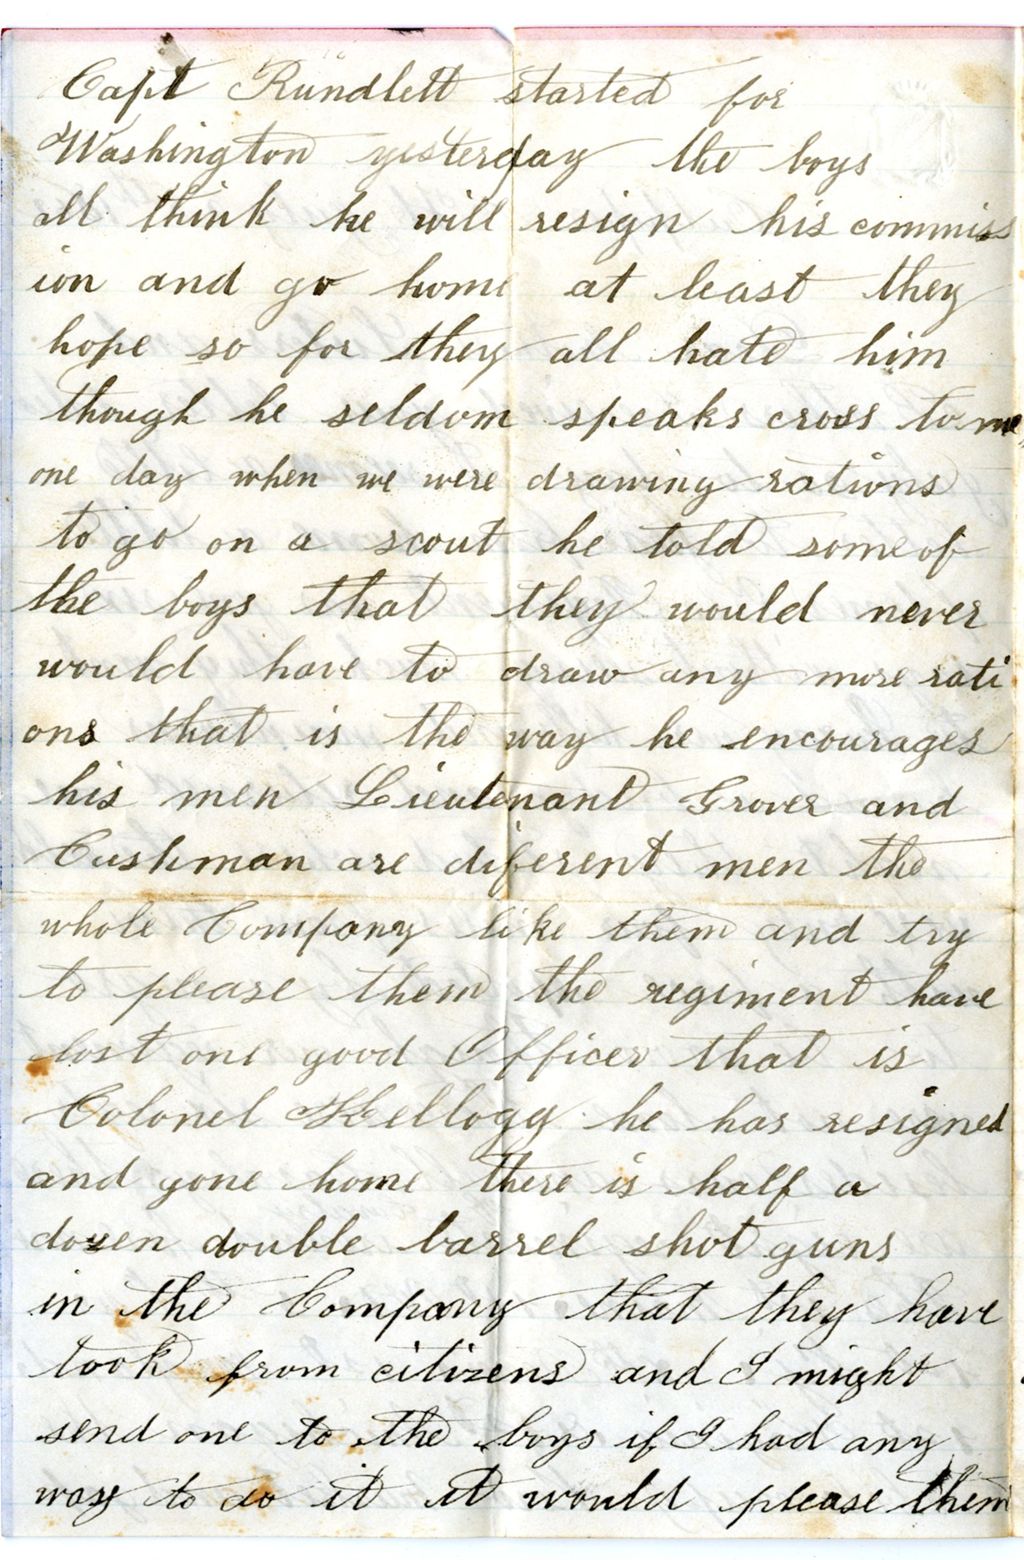 Capt Rundlett started for
Washington yesterday the boys
all think he will resign his commiss
ion and go home at least they
hope so for they all hate him
though he seldom speaks cross to me,
one day when we were drawing rations
to go on a scout he told some of
the boys that they would never
would have to draw any more rati
ons that is the way he encourages
his men Lieutenant Grover and
Cushman are diferent men the
whole Company like them and try
to please them the regiment have
lost one good Officer that is
Colonel Kellogg he has resigned
and gone home there is half a
dozen double barrel shot guns
in the Company that they have
took from citizens and I might
send one to the boys if I had any
way to do it it would please them